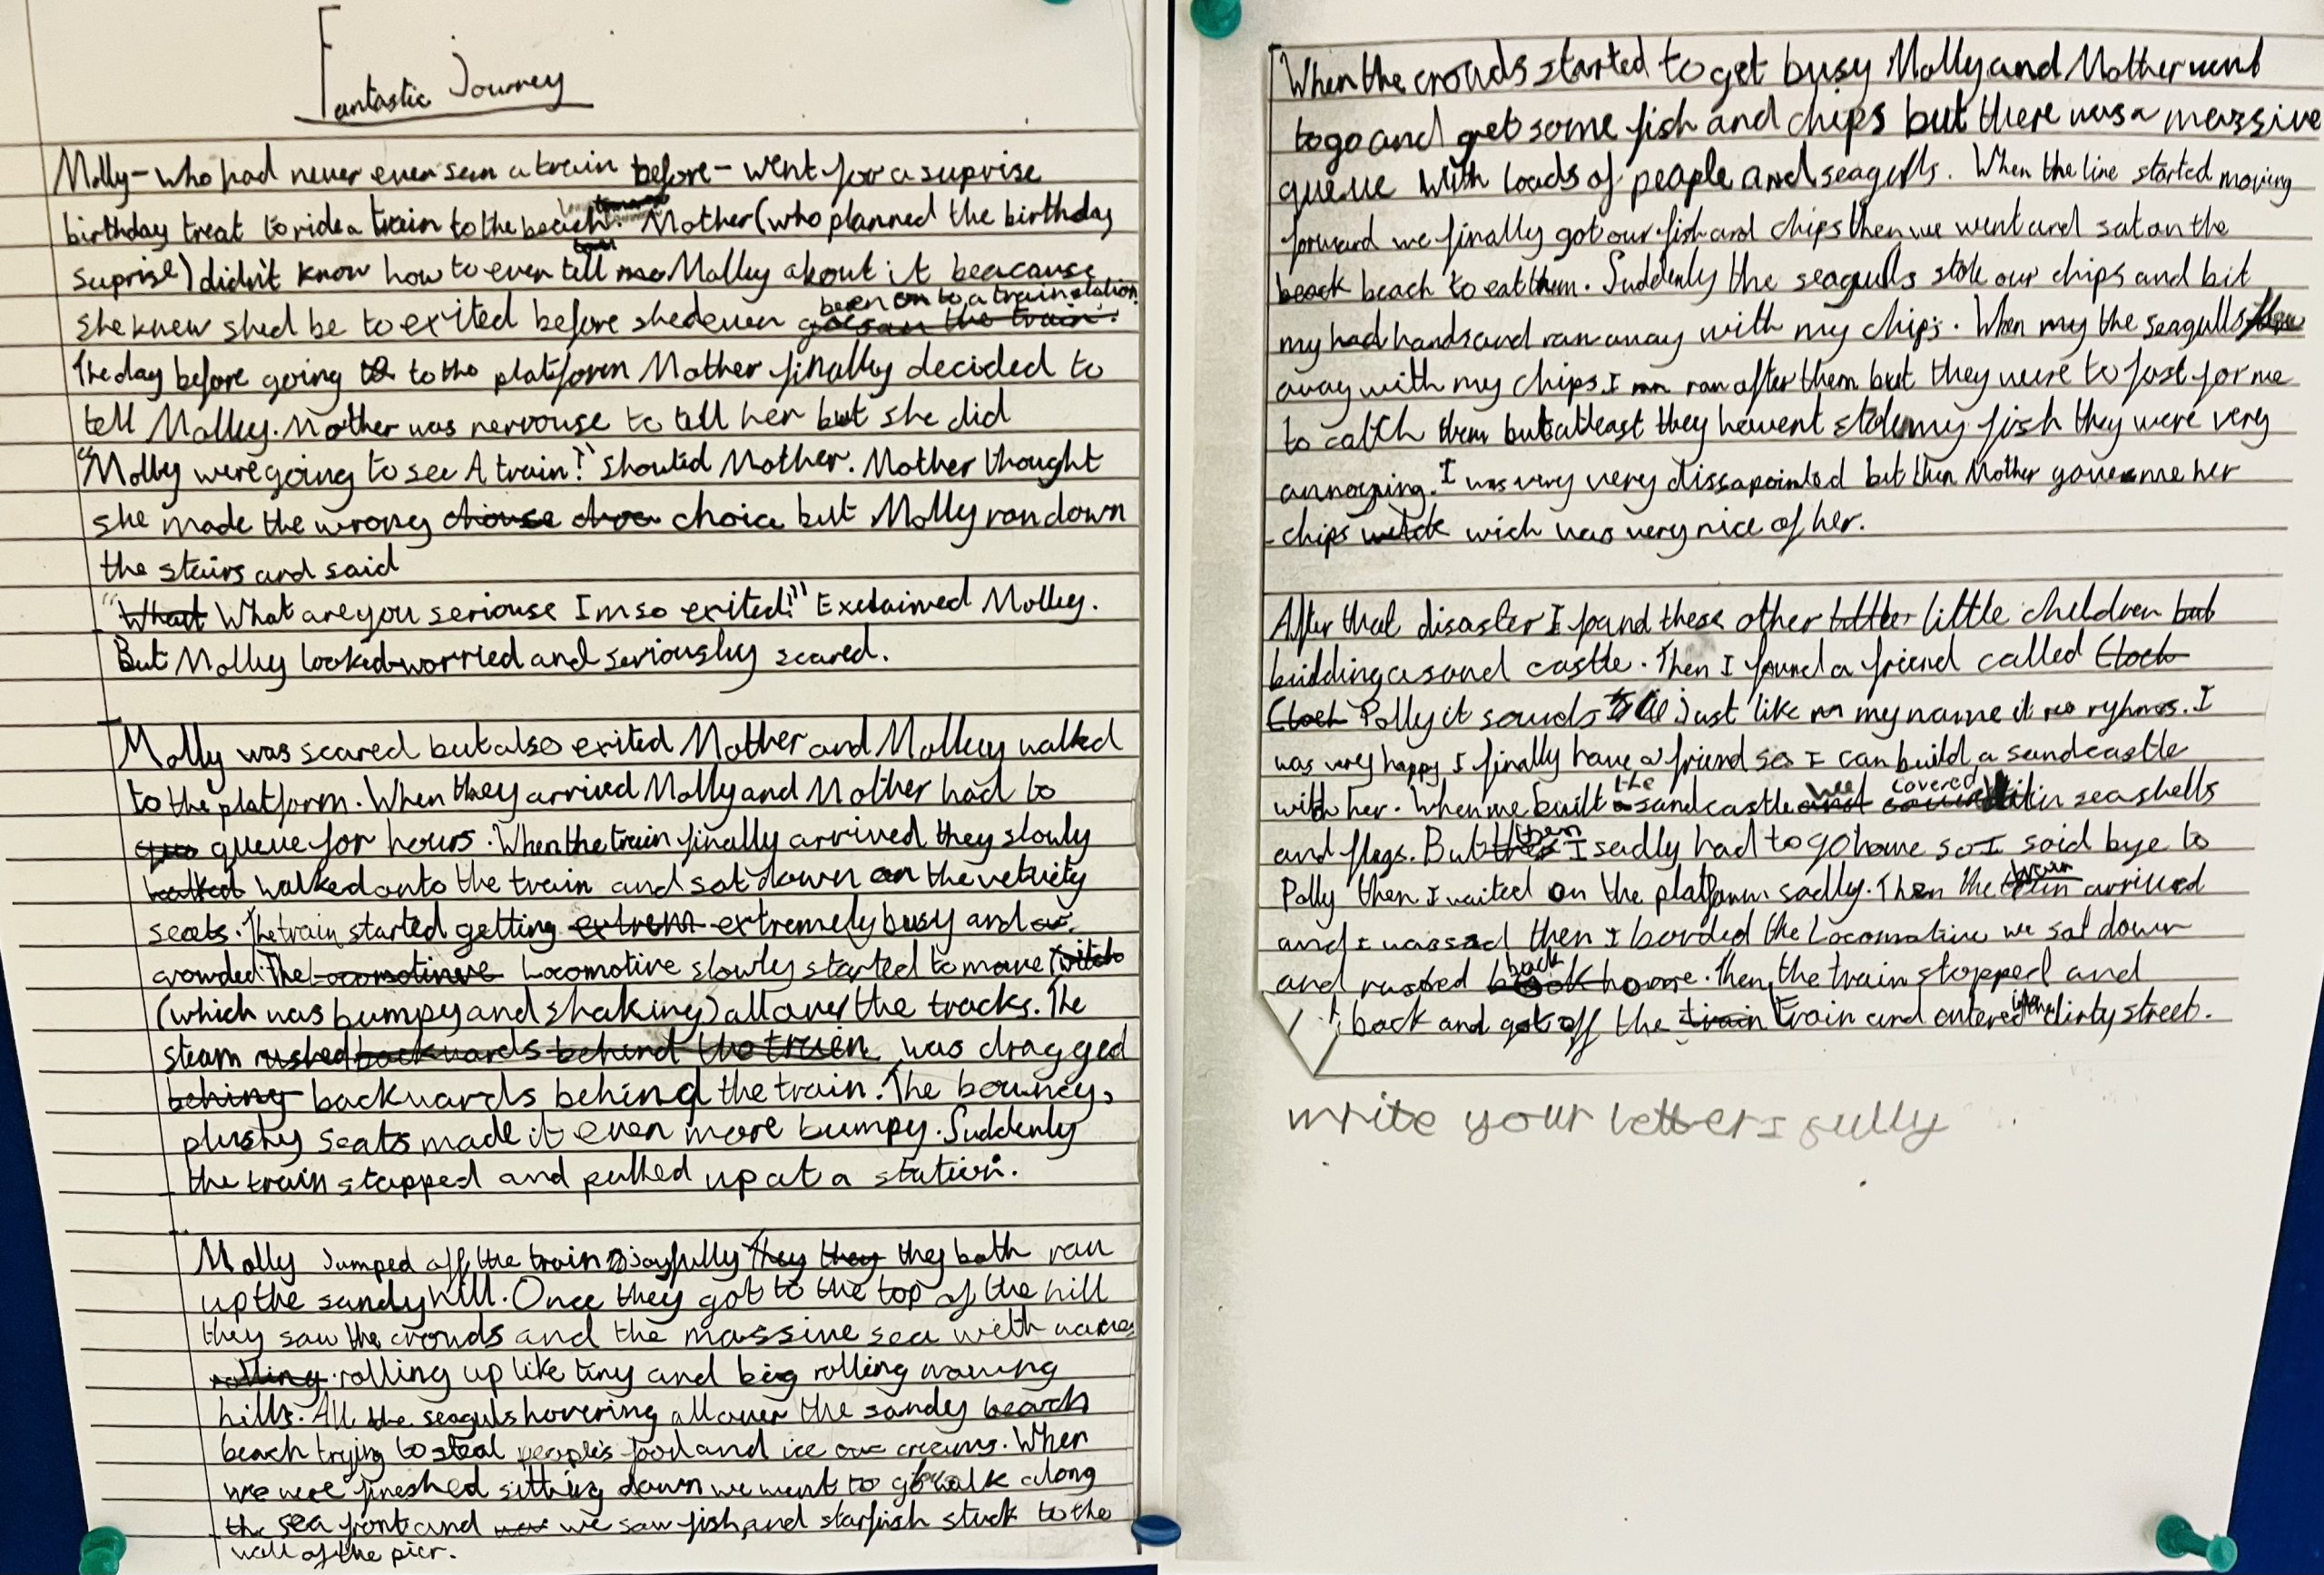 Fantastic Journey
Molly - who had never even seen a train before - went for a suprise
birthday treat to ride a train to the beach. Mother (who planned the birthday
suprise) didn't know how to even tell Molley about it beacause
she knew shed be to exited before shed even been on to a train station.
The day before going to the platform Mother finally decided to
tell Molley. Mother was nervouse to tell her but she did
"Molly were going to see A train!" shouted Mother. Mother thought
she made the wrong choice but Molly ran down
the stairs and said
"What are you seriouse Im so exited!" Exclaimed Molley.
But Molley looked worried and seriously scared.
Molly was scared but also exited Mother and Molley walked
to the platform. When they arrived Molly and Mother had to
queue for hours. When the train finally arrived they slowly
walked onto the train and sat down on the
seats. The train started getting extremely busy and
crowded. The Locomotive slowly started to move
(which was bumpy and shaking) all over the tracks. The
steam was dragged
backwards behind the train. The bouncy,
plushy seats made it even more bumpy. Suddenly
the train stopped and pulled up at a station.
Molly Jumped off the train joyfully they both ran
up the sandy hill. Once they got to the top of the hill
they saw the crowds and the massive sea with waves
rolling up like tiny and big rolling
hills. All the seaguls hovering all over the sandy
beach trying to steal people's food and ice creams. When
we were fineshed sitting down we went to go walk along
the sea front and we saw fish and starfish stuck to the
wall of the pier.
When the crowds started to get busy Molly and Mother went
to go and get some fish and chips but there was a massive
queue with loads of people and seagulls. When the line started moving
forward we finally got our fish and chips then we went and sat on the
beach to eat them. Suddenly the seagulls stole our chips and bit
my hands and ran away with my chips. When my the seagulls flew
away with my chips I ran after them but they were to fast for me
to catch them but atleast they havent stolen my fish they were very
annoying. I was very very dissapointed but then Mother gave me her
chips wich was very nice of her.
After that disaster I found these other little children
building a sand castle. Then I found a friend called
Polly it sounds Just like my name it ryhmes. I
was very happy I finally have a friend so I can build a sandcastle
with her. When we built the sandcastle we covered it in seashells
and flags. But then I sadly had to go home so I said bye to
Polly then I waited on the platform sadly. Then the train arrived
and I was sad then I borded the Locomotive we sat down
and rushed back home. Then the train stopped and
I back and got off the train and entered the dirty street.
write your letters fully